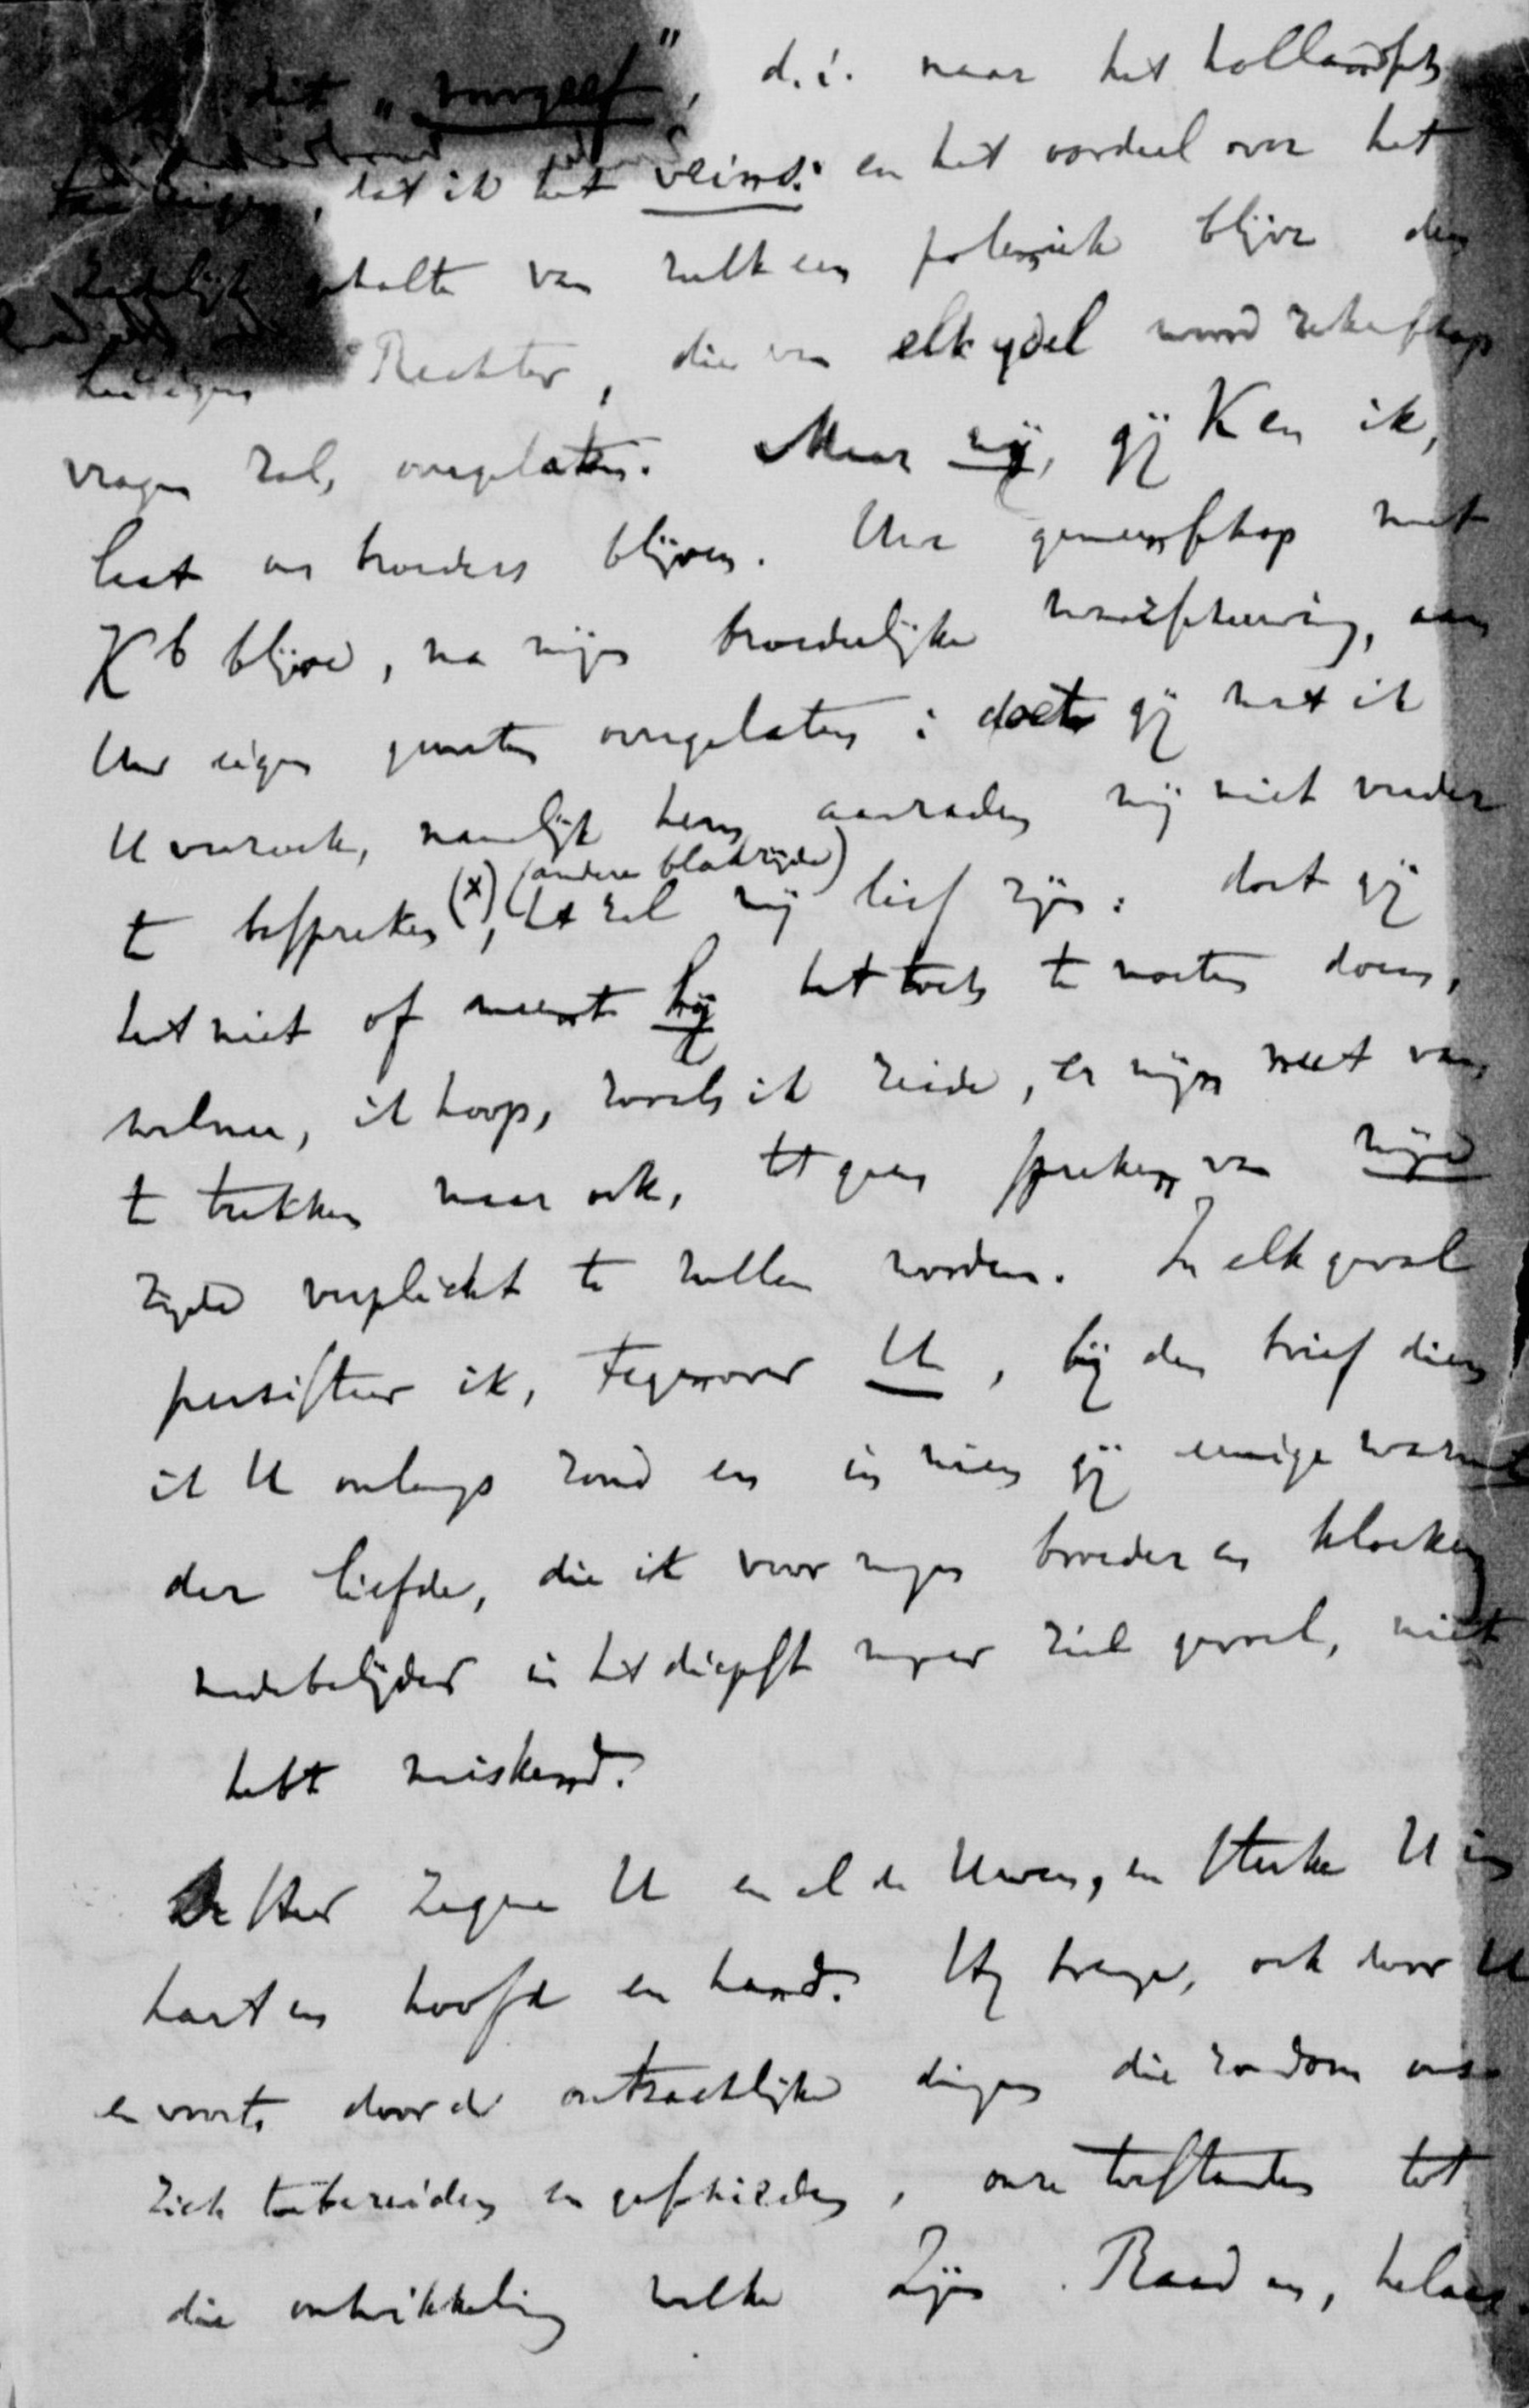 dit "voorgeef", d.i. naar het hollandsch
, dat ik het veins: en het oordeel over het
zedelijk gehalte van zulk een polemiek blijve den
heiligen Rechter, die van elk ydel woord rekenschap
vragen zal, overgelaten. Maar wij, gij K en ik,
laat ons broeders blijven. Uwe gemeenschap met
Kb blijve, na mijn broederlijke waarschuwing, aan
Uw eigen geweten overgelaten: doet gij wat ik
U verzoek, namelijk hem aanraden mij niet verder
te bespreken (x), (andere bladzijde) het zal mij lief zijn: doet gij
het niet of meent hij het toch te moeten doen,
welnu, ik hoop, zooals ik zeide, er mijn nut van
te trekken maar ook, tegen spreken van mijne
zijde verplicht te zullen worden. In elk geval
persisteer ik, tegenover U, bij den brief dien
ik U onlangs zond en in wien gij eenige warmte
der liefde, die ik voor mijn broeder en kloeken
medebelijder in het diepst mijner ziel gevoel, niet
hebt miskend.
De Heer zegene U en al de Uwen, en sterke U in
hart en hoofd en hand. Hij brenge, ook door U
en voorts door de ontzachlijke dingen die rondom ons
zich toebereiden en geschieden, onze toestanden tot
die ontwikkeling welke Zijn Raad en, helaas